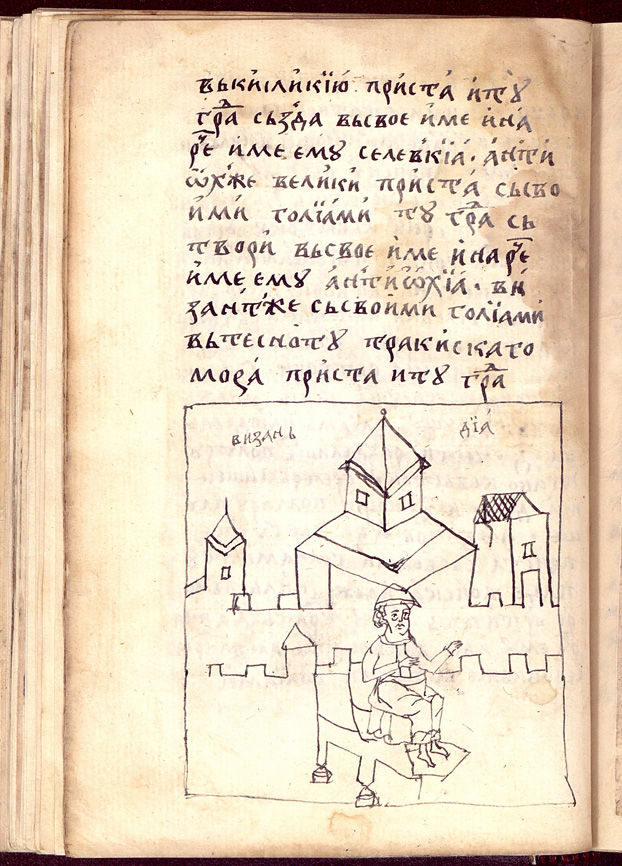 вькилїкїю приста итꙋ
гра̑ сьзда вьсвое и́ме и́на
ре̑ и́ме емꙋ селевкїа · анти
ѡхже велики приста сьсво
и́ми голїами тꙋ гра̑ сь
твори вьсвое и́ме и́наре̑
и́ме емꙋ антиѡхїа · ви
зантже сьсвоими голїами
вьтеснотꙋ тракискаго
мора приста итꙋ гра̑
византь дїа